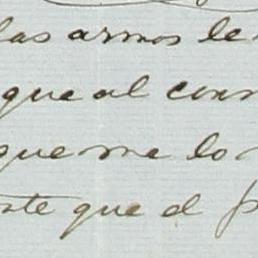 las armos le
que al con
que me lo
ste que el p